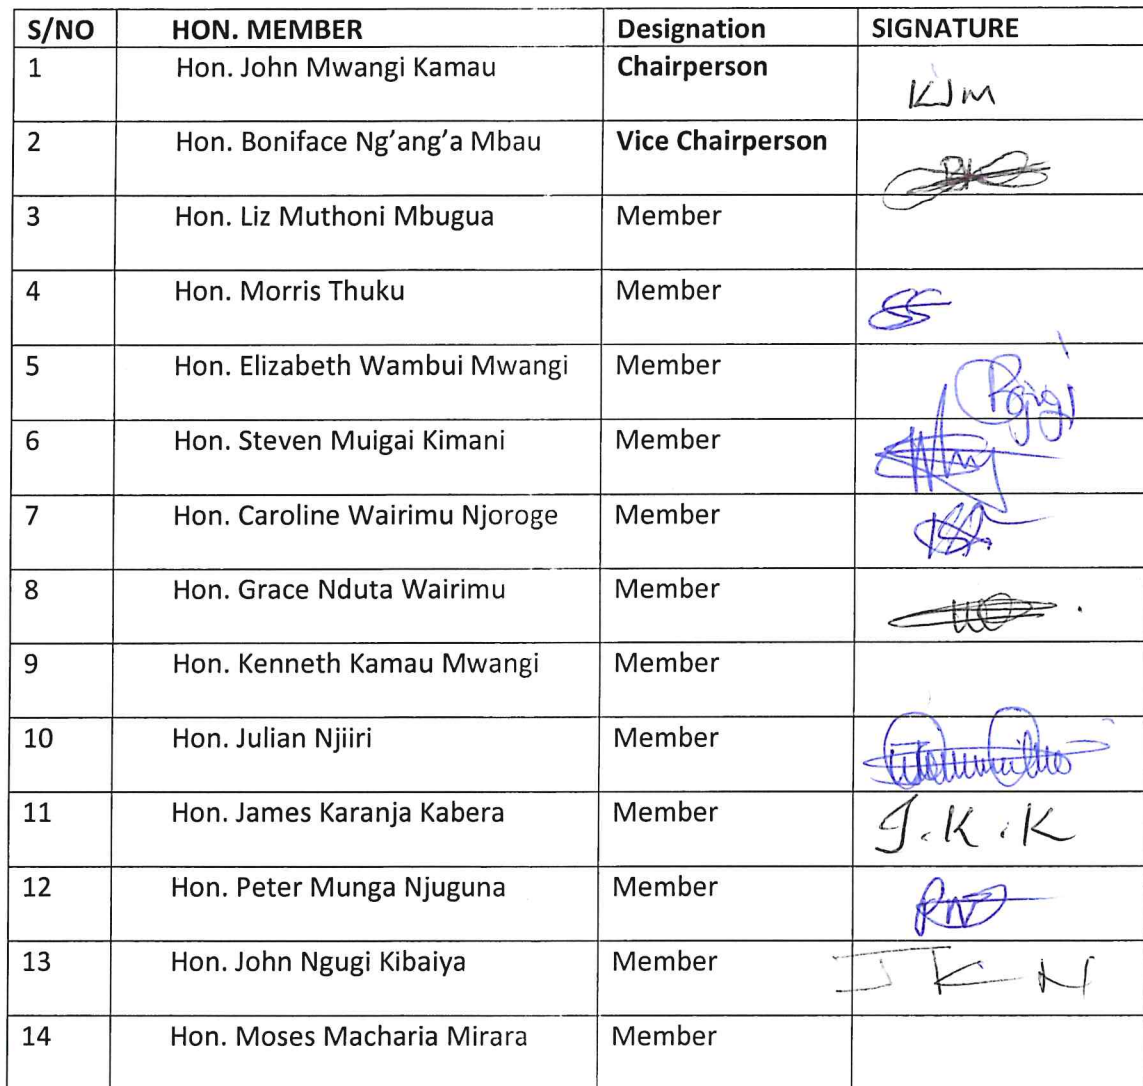 S/NO HON. MEMBER Designation SIGNATURE
1 Hon. John Mwangi Kamau Chairperson KJM
2 Hon. Boniface Ng’ang’a Mbau Vice Chairperson
3 Hon. Liz Muthoni Mbugua Member
4 Hon. Morris Thuku Member
5 Hon. Elizabeth Wambui Mwangi Member
6 Hon. Steven Muigai Kimani Member
7 Hon. Caroline Wairimu Njoroge Member
8 Hon. Grace Nduta Wairimu Member
9 Hon. Kenneth Kamau Mwangi Member
10 Hon. Julian Njiiri Member
11 Hon. James Karanja Kabera Member J.K.K
12 Hon. Peter Munga Njuguna Member
13 Hon. John Ngugi Kibaiya Member J K N
14 Hon. Moses Macharia Mirara Member